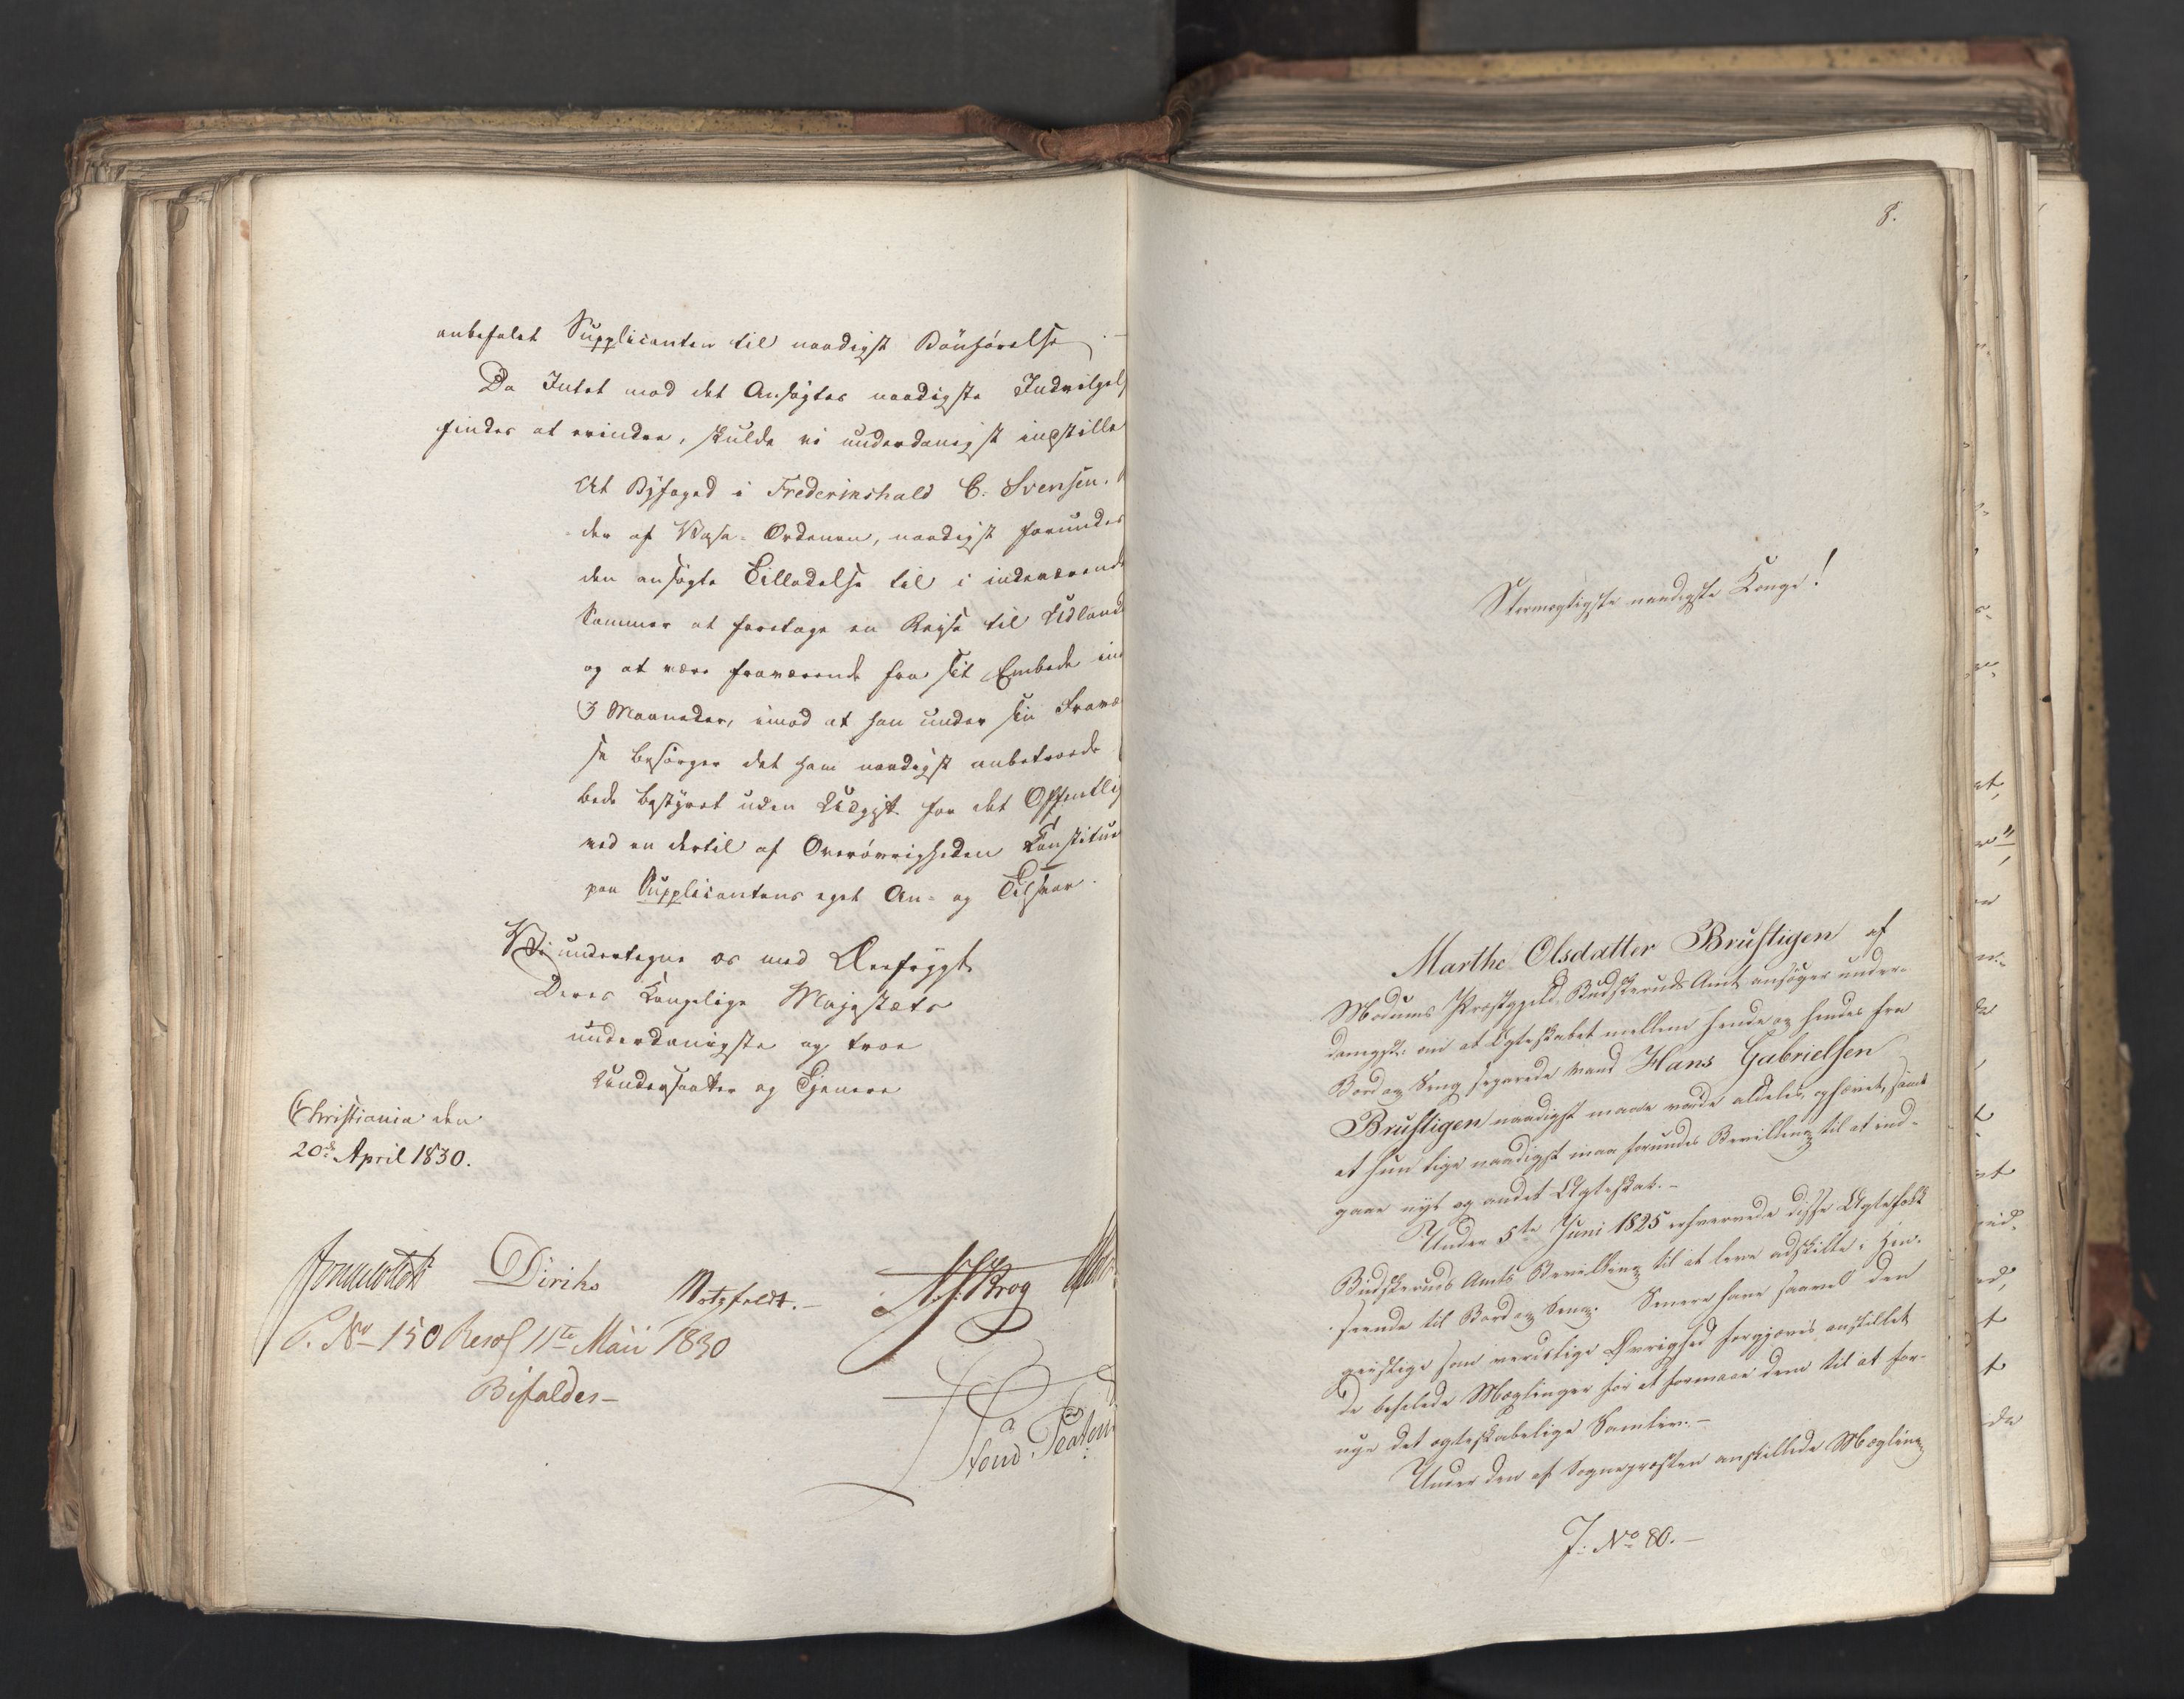 anbefalet Supplicanten til naadigst Bönhörelse.
Da Intet mod det Ansøgtes naadigste Indvilgel
findes at erindre, skulde vi underdanigst indstille
At Byfoged i Frederikshald C. Svensen,
der af Wasa-Ordenen, naadigst forundes
den ansøgte Tilladelse til i indeværende
Sommer at foretage en Reise til Udland
og at være fraværende fra sit Embede ind
3 Maaneder, imod at han under sin Fravæ
se besörger det ham naadigst anbetroede
bede bestyret uden Udgift for det Offentlig
ved en dertil af Overövrigheden Constitue
paa Supplicantens eget An- og Tilsvar.
Vi undertegne os med Ærefrygt
Deres Kongelige Majestæts
underdanigste og troe
Undersaatter og Tjenere
Christiania den
20de April 1830.
Diriks Motzfeldt.- Krog
P. No 150 Resol 11te Maii 1830
Bifaldes-
8.
Stormægtigste naadigste Konge!
Marthe Olsdatter Brustigen af
Modums Præstegjeld, Budskeruds Amt ansøger under-
danigst: om at Ægteskabet mellem hende og hendes fra
Bord og Seng separede Mand Hans Gabrielsen
Brustigen naadigst maae vorde aldeles ophævet, samt
at hun lige naadigst maa forundes Bevilling til at ind-
gaae nyt og andet Ægteskab.-
Under 5te Juni 1825 erhvervede disse Ægtefolk
Budskeruds Amts Bevilling til at leve adskilte i Hen-
seende til Bord og Seng. Senere have saavel den
geistlige som verdslige Øvrighed forgjæves anstillet
de befalede Mæglinger for at formaae dem til at for-
nye det ægteskabelige Samliv.-
Under den af Sognepræsten anstillede Mægling
J: No 80.-